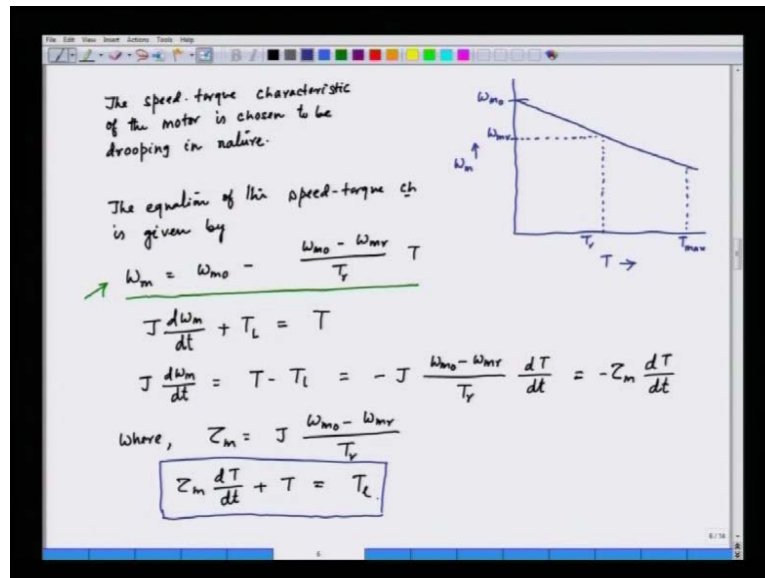 File Edit View Insert Actions Tools Help
The speed-torque characteristic
of the motor is chosen to be
drooping in nature.
The equation of this speed-torque ch
is given by
ω_m = ω_mo - (ω_mo - ω_mr)/T_r T
J dω_m/dt + T_L = T
J dω_m/dt = T - T_l = - J (ω_mo - ω_mr)/T_r dT/dt = -τ_m dT/dt
Where, τ_m = J (ω_mo - ω_mr)/T_r
τ_m dT/dt + T = T_l.
ω_mo
ω_mr
ω_m ↑
T_r
T_max
T →
6
6/14